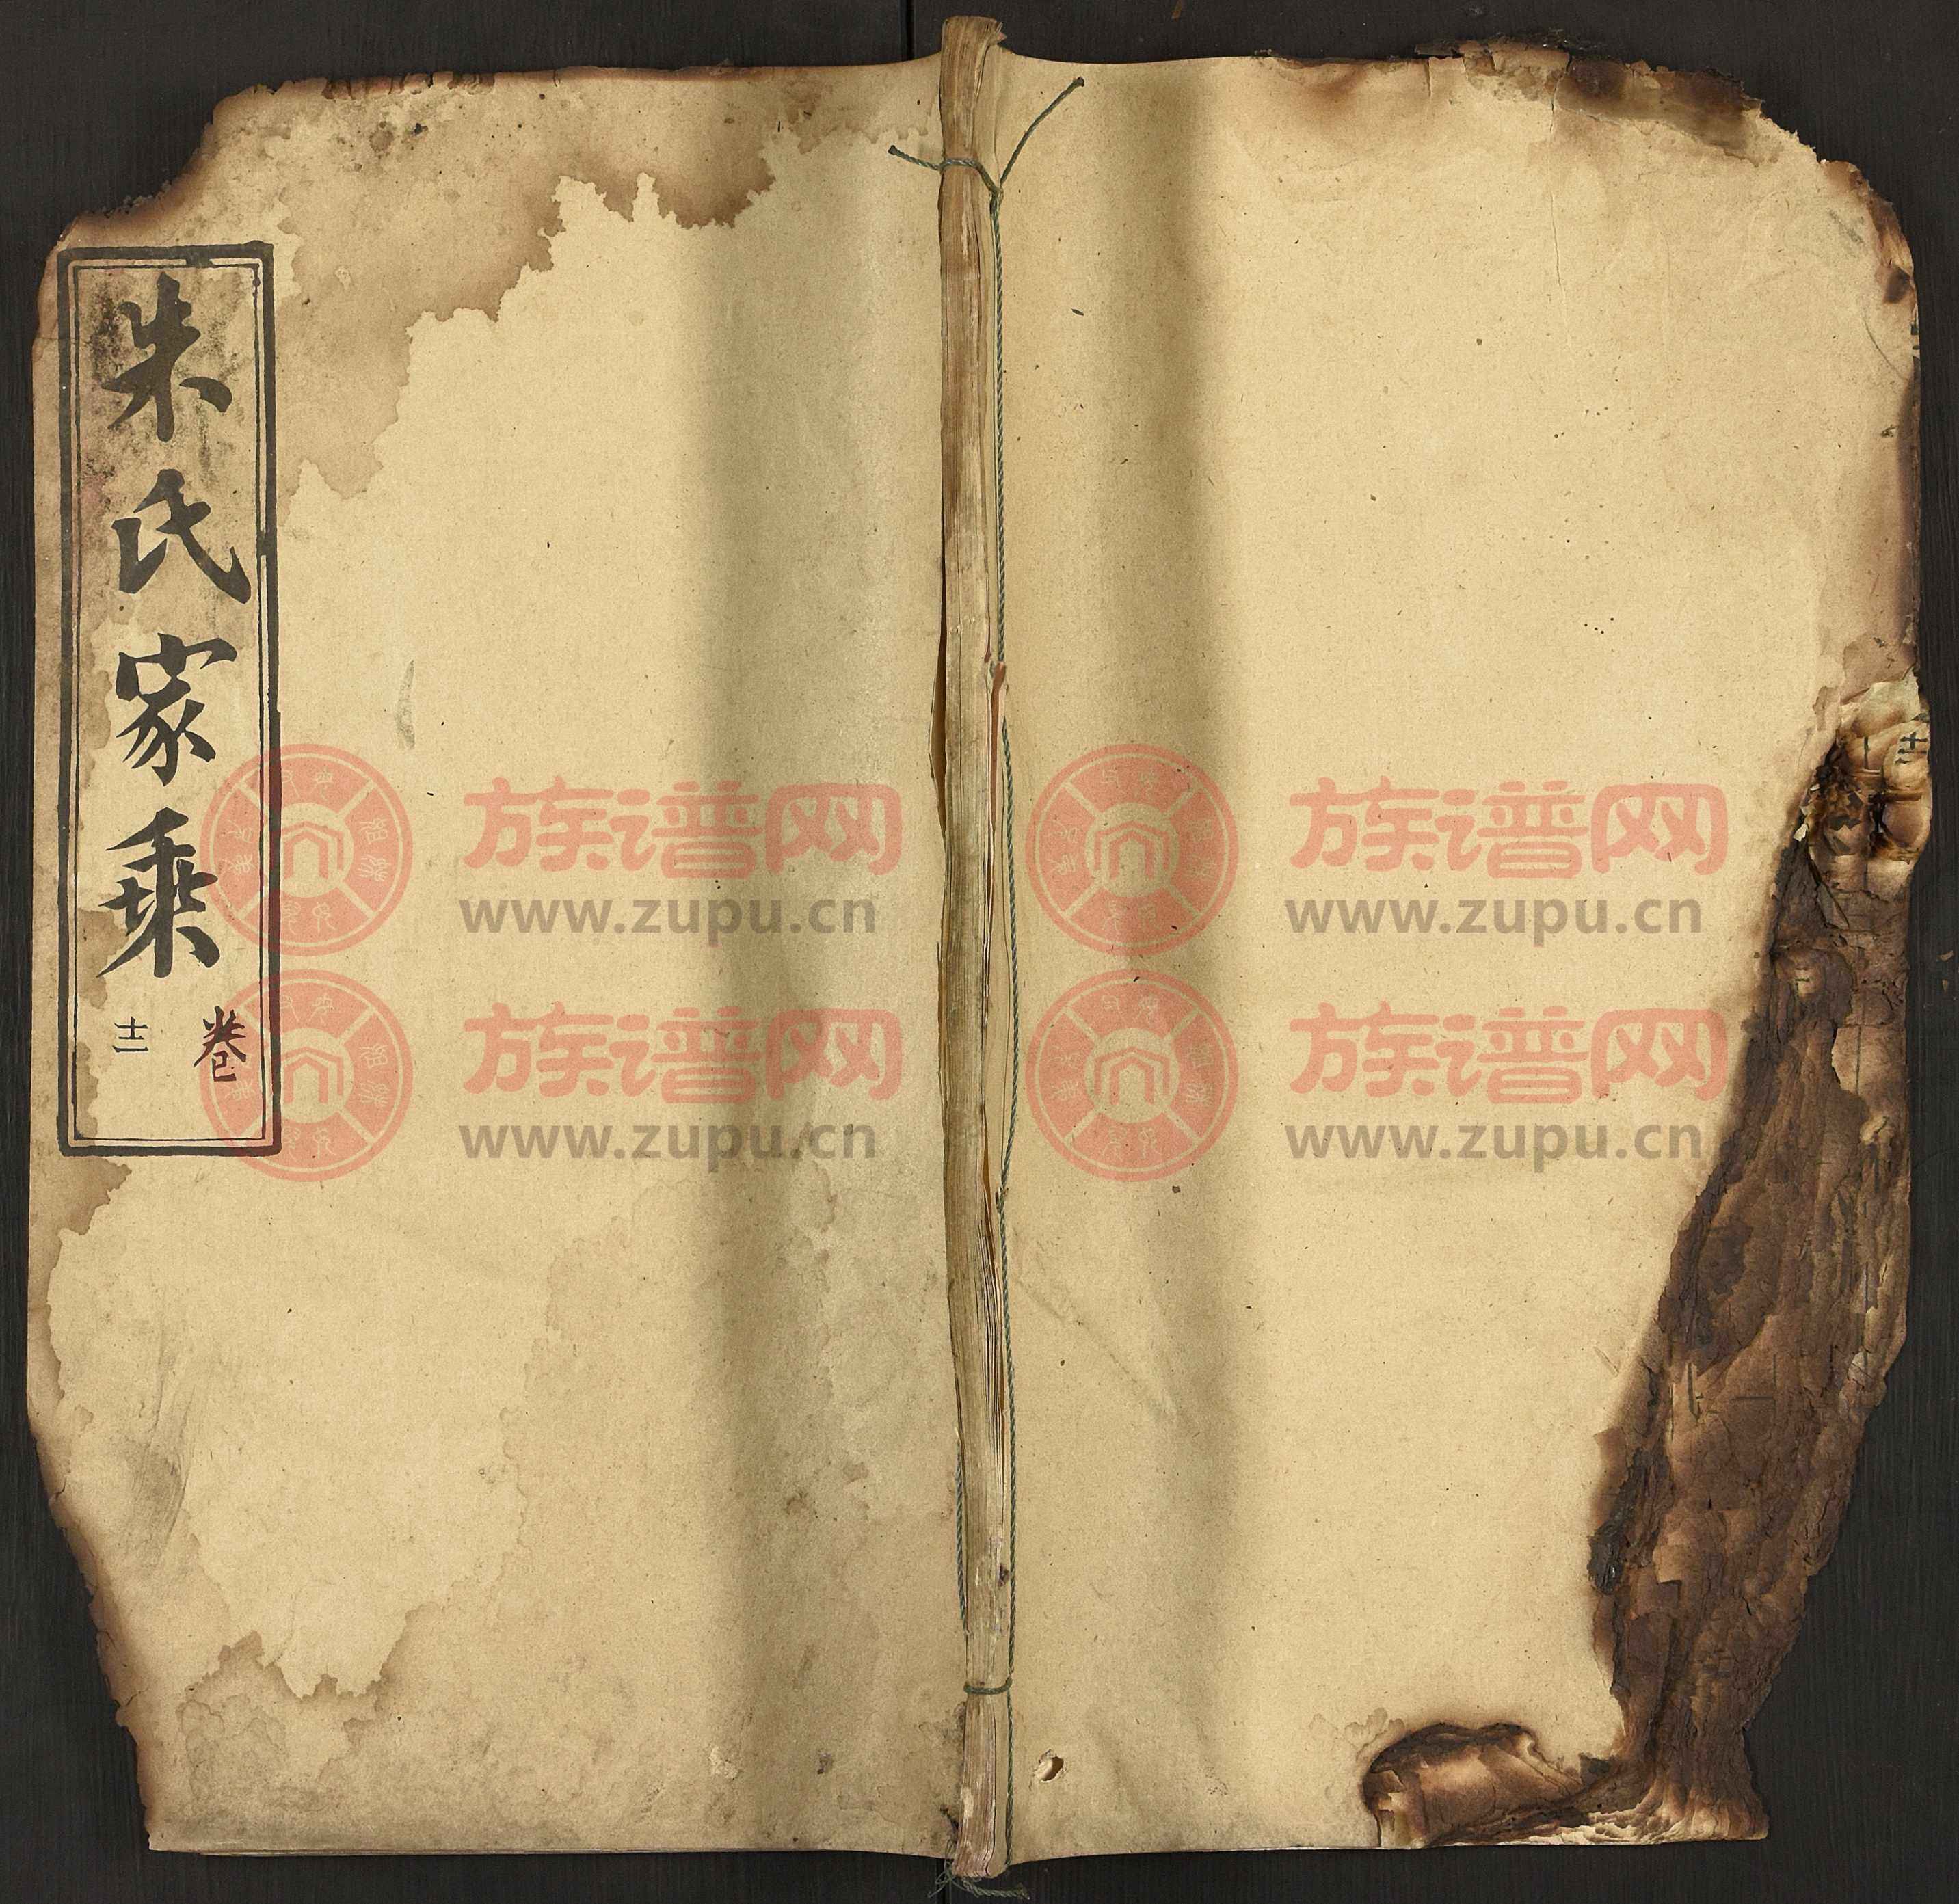 朱氏家乘
卷
十二
族谱网
www.zupu.cn
族谱网
www.zupu.cn
族谱网
www.zupu.cn
族谱网
www.zupu.cn